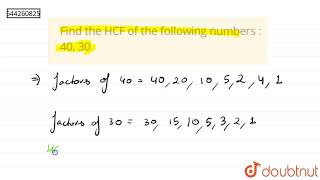 644260825
Find the HCF of the following numbers :
40, 30
⇒) factors of 40 = 40, 20, 10, 5, 2, 4, 1
factors of 30 = 30, 15, 10, 5, 3, 2, 1
doubtnut